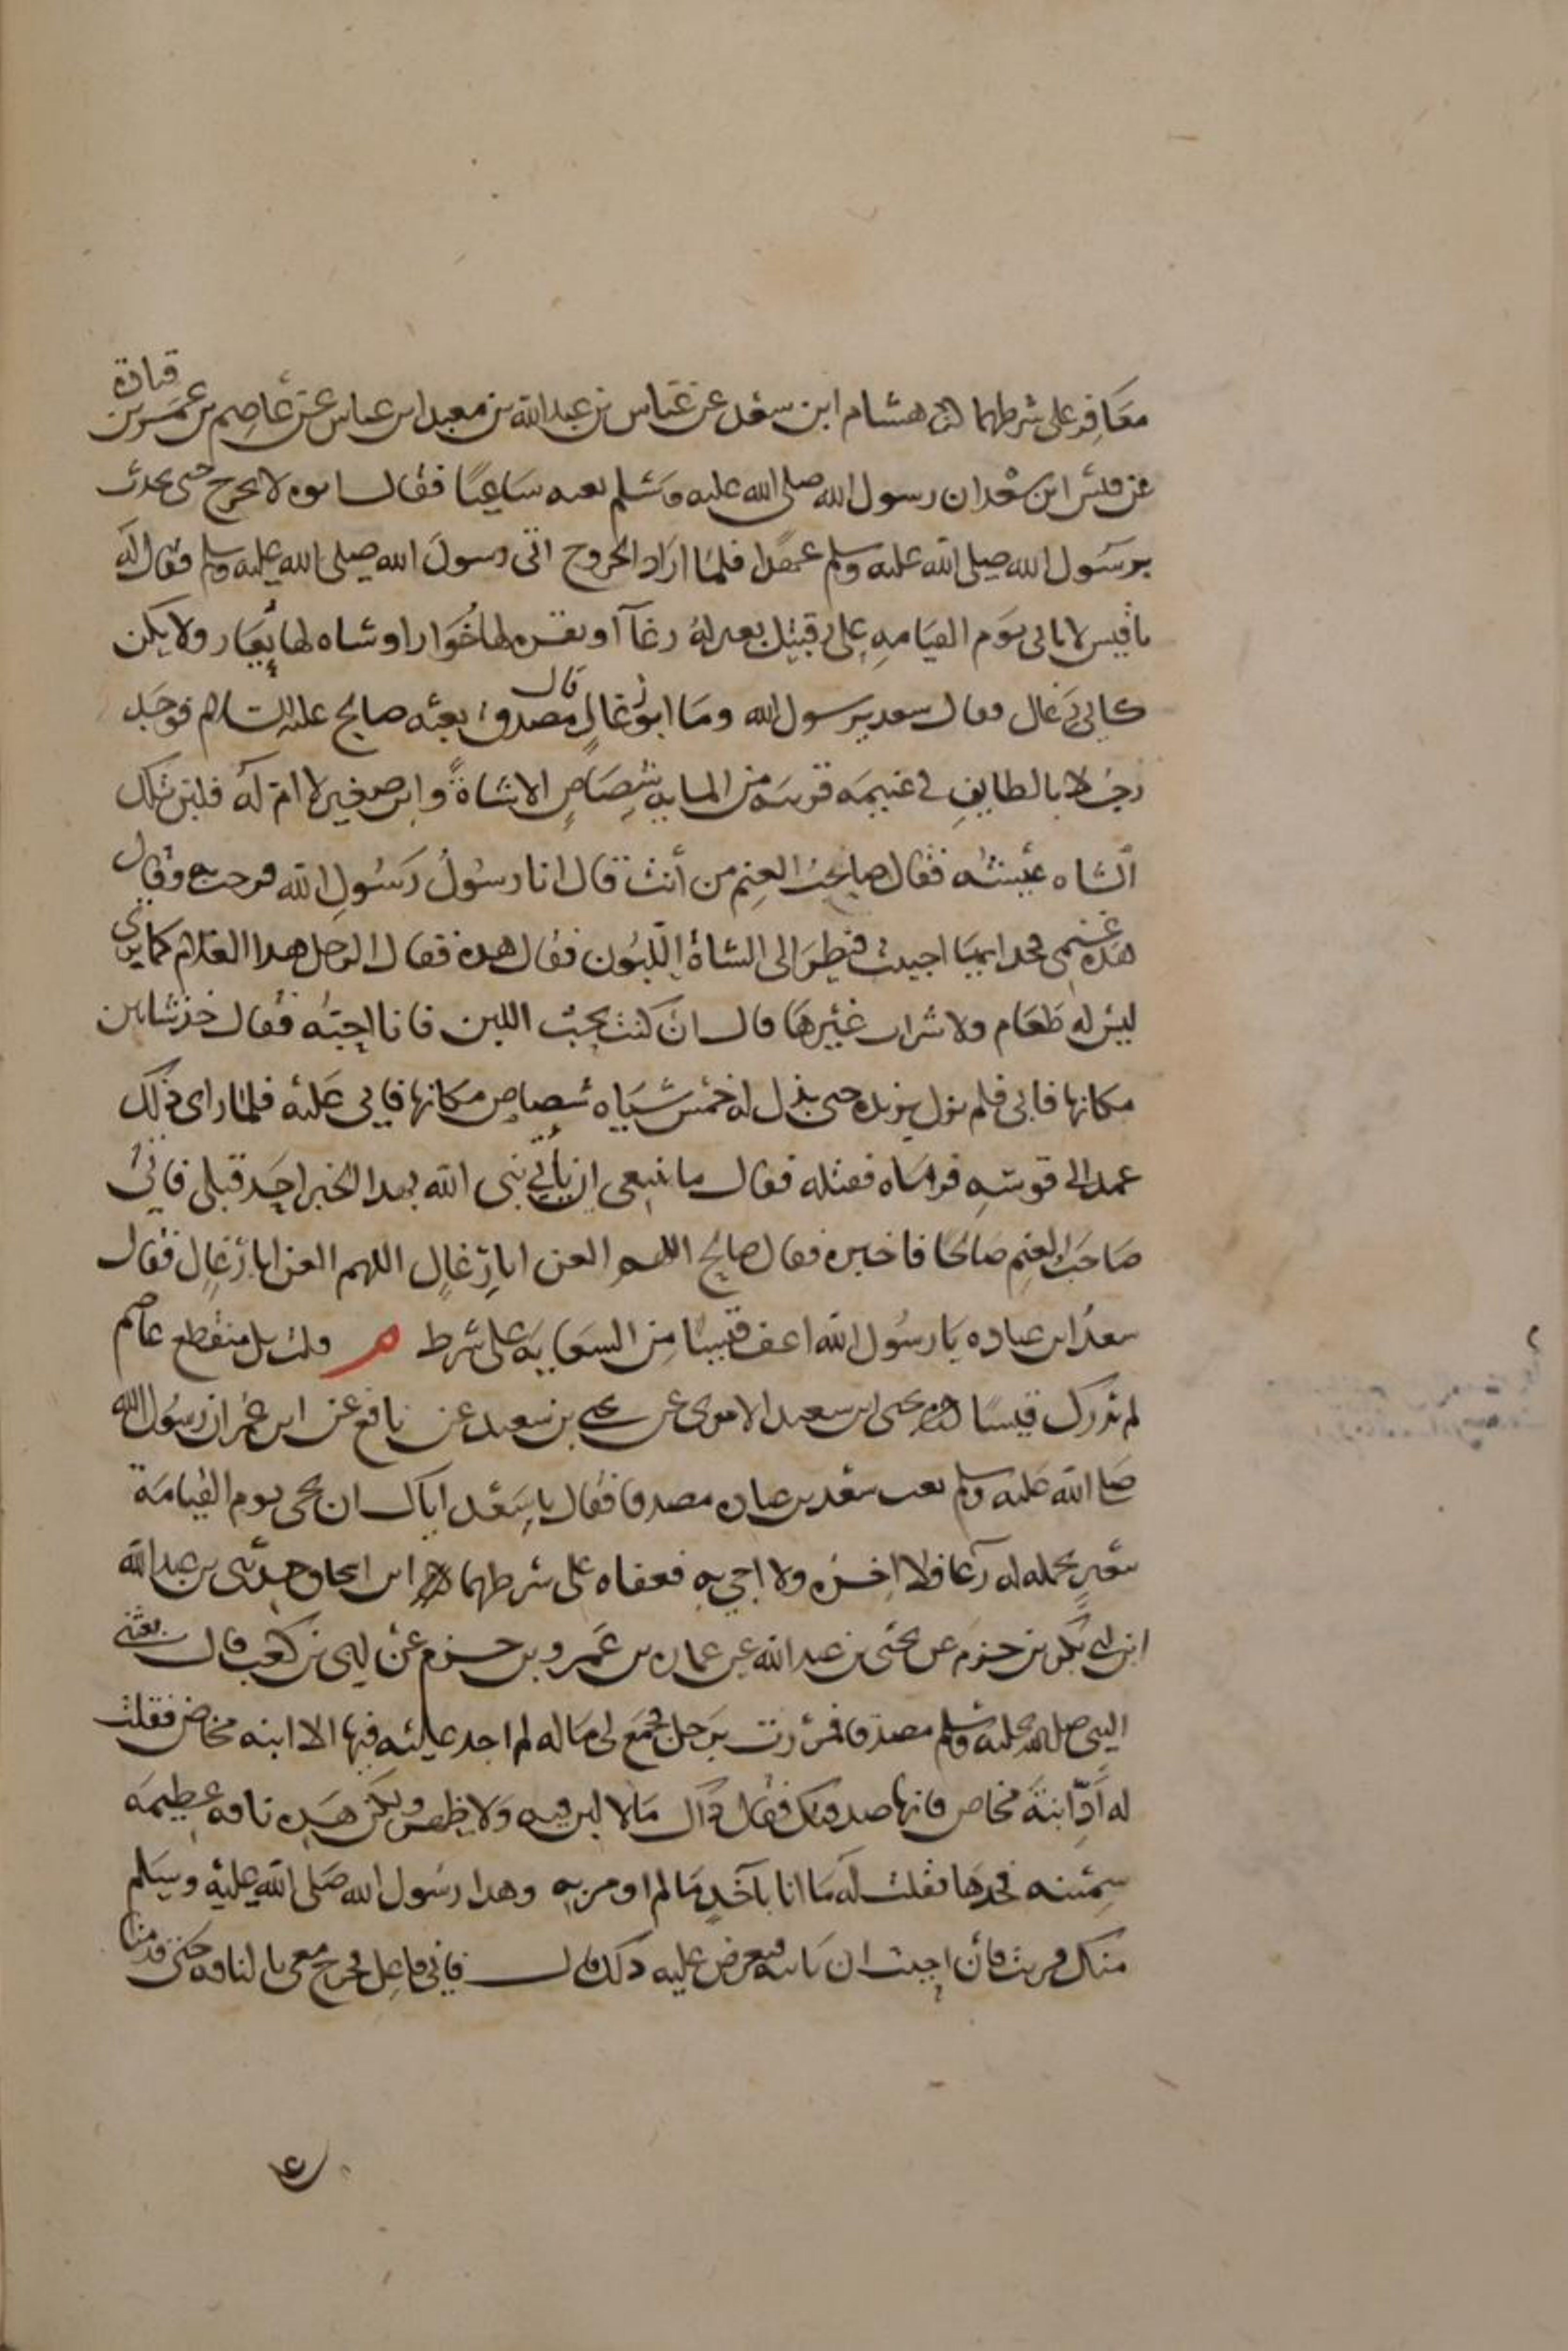 معافر على شرطهما هشام ابن سعد عن عباس بن عبد الله بن معبد ابن عباس عن عاصم بن عمر بن قتادة
عن قيس ابن سعد ان رسول الله صلى الله عليه وسلم بعثه ساعيا فقال ابوه لا تخرج حتى تحدث
برسول الله صلى الله عليه وسلم عهدا فلما اراد الخروج اتى رسول الله صلى الله عليه وسلم فقال له
يا قيس لا تاتى يوم القيامه على رقبتك بعير له رغآ او بقره لها خوار او شاه لها يعار ولا تكن
كابى رغال فقال سعد يرسول الله وما ابو رغال قال مصدق بعثه صالح عليه السلام فوجد
رجلا بالطايف فى غنيمه قريبه من المايه شصاص الا شاة وابن صغير لا ام له فلبن تلك
الشاه عيشته فقال صاحب الغنم من أنت قال انا رسول رسول الله فرحب وقال
هذه غنمى فخذ ايما احببت فنظر الى الشاة اللبون فقال هذه فقال الرجل هذا الغلام كما ترى
ليس له طعام ولا شراب غيرها قال ان كنت تحب اللبن فانا احبه فقال خذ شاتين
مكانها فابى فلم يزل يزيده حتى بذل له خمس شياه شصاص مكانها فابى عليه فلما راى ذلك
عمد الى قوسه فرماه فقتله فقال ما ينبغى ان ياتى نبى الله بهذا الخبر احد قبلى فاتى
صاحب الغنم صالحا فاخبره فقال صالح اللهم العن ابا رغال اللهم العن ابا رغال فقال
سعد ابن عباده يا رسول الله اعف قيسا من السعايه على شرط م قلت بل منقطع عاصم
لم يدرك قيسا يحيى ابن سعيد الاموى عن يحيى بن سعيد عن نافع عن ابن عمر ان رسول الله
صلى الله عليه وسلم بعث سعد بن عباده مصدقا فقال يا سعد اياك ان تجى يوم القيامة
ببعير تحمله له رغا قال لا اخذه ولا اجى به فعفاه على شرطهما ابن اسحاق حدثنى بن عبد الله
ابن ابى بكر بن حزم عن يحيى بن عبد الله عن عماره بن عمرو بن حزم عن ابى بن كعب قال بعثنى
النبى صلى الله عليه وسلم مصدقا فمررت برجل فجمع لى ماله لم اجد عليه فيها الا ابنه مخاض فقلت
له أدّ ابنة مخاض فانها صدقتك فقال ذاك مالا لبن فيه ولا ظهر ولكن هذه ناقه عظيمه
سمينه فخذها فقلت له ما انا بآخذ ما لم اومر به وهذا رسول الله صلى الله عليه وسلم
منك قريب فأن احببت ان تاتيه فتعرض عليه ذلك قال فانى فاعل فخرج معى بالناقه حتى قدمنا